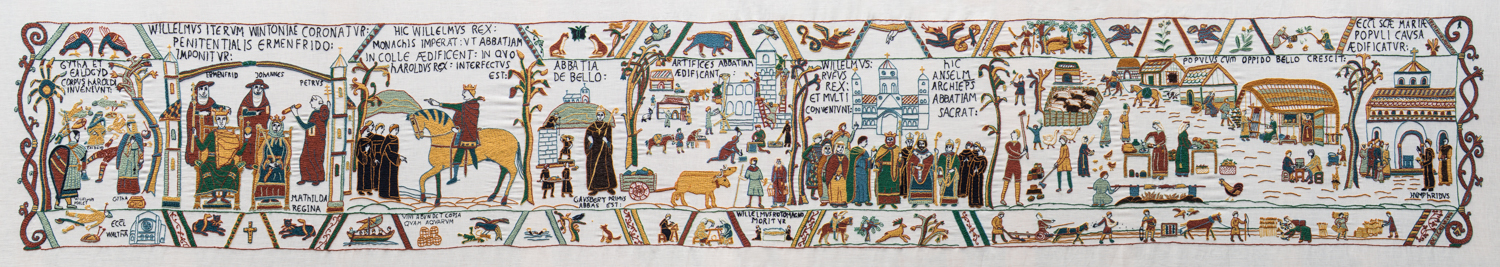 WILLELMVS ITERVM WINTONIAE CORONATVR:
PENITENTIALIS ERMENFRIDO:
IMPONITVR:
GYTHA ET
EALDGYD
CORPVS HAROLDI
INVENIVNT:
ERMENFRID
JOHANNES
PETRVS
MATHILDA
REGINA
GYTHA
HIC WILLELMVS REX:
MONACHIS IMPERAT: VT ABBATIAM
IN COLLE ÆDIFICENT: IN QVO
HAROLDVS REX: INTERFECTVS
EST:
ABBATIA
DE BELLO:
GAVSBERT PRIMVS
ABBAS EST:
ARTIFICES ABBATIAM
ÆDIFICANT:
WILLELMVS:
RVFVS
REX:
ET MVLTI
CONVENIVNT:
HIC
ANSELM
ARCHIEPS
ABBATIAM
SACRAT:
POPVLVS CVM OPPIDO BELLO CRESCIT:
ECCL SCÆ MARIÆ
POPVLI CAVSA
ÆDIFICATVR:
ECCL
WALTHA
COPIA
QVAM AQVARVM
WILLELMVS ROTOMAGNO
MORITVR